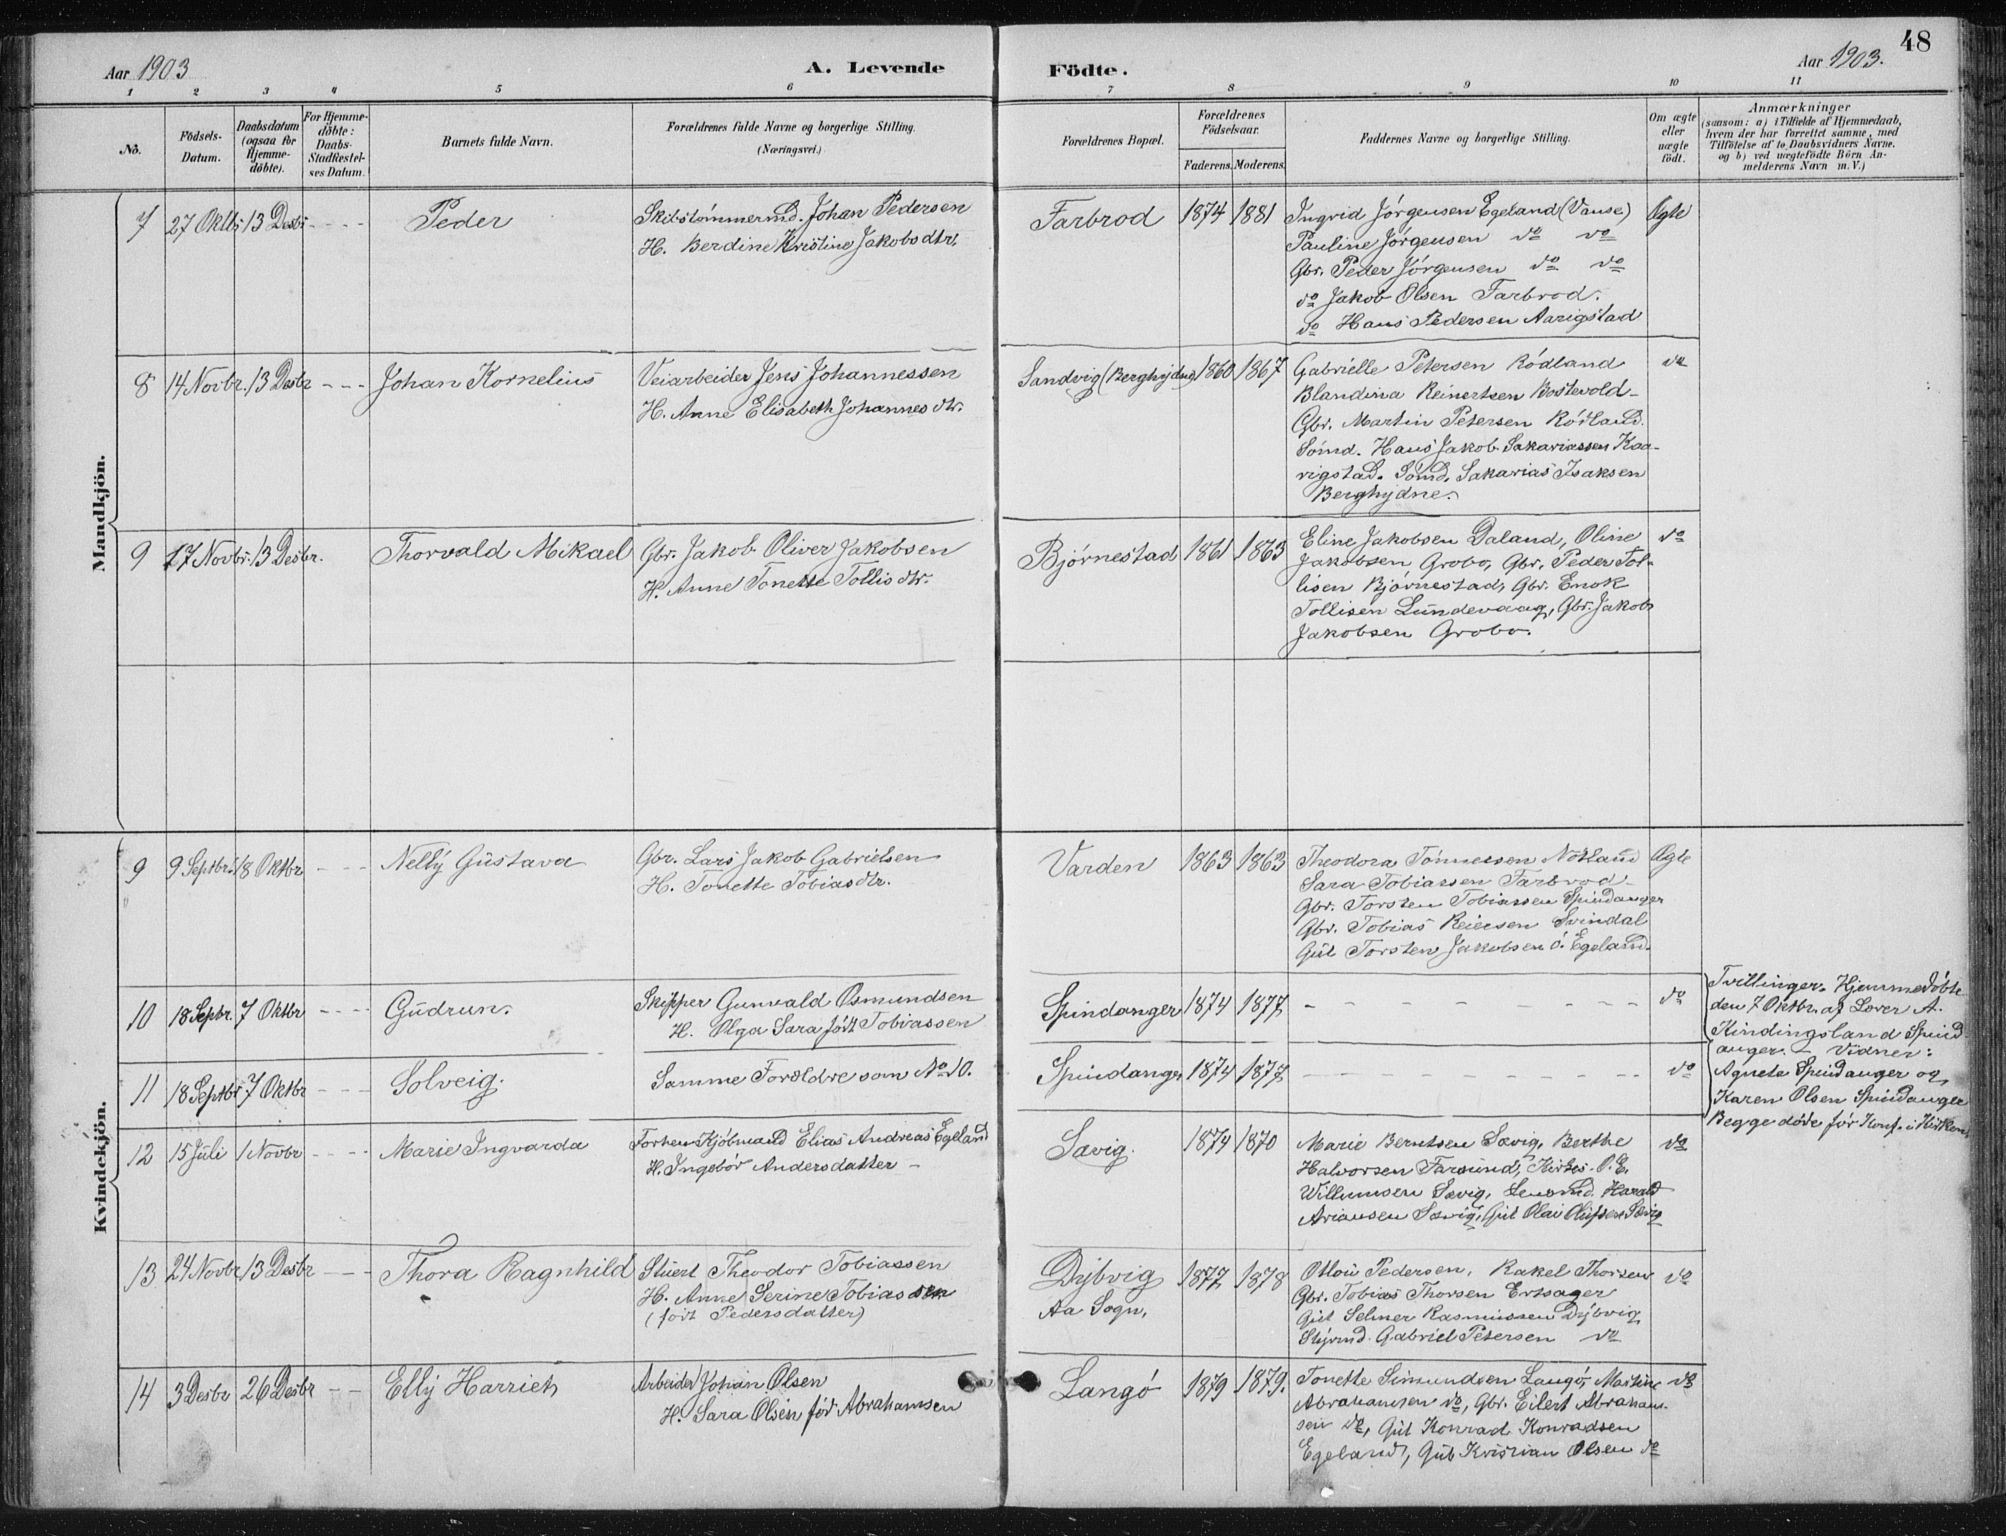 48
Aar 1903
A. Levende
Födte.
Aar 1903.
1 2 3 4 5 6 7 8 9 10 11
No.
Födsels-
Datum.
Daabsdatum
(ogsaa for
Hjemme-
döbte).
For Hjemme-
döbte:
Daabs-
Stadfæstel-
ses Datum.
Barnets fulde Navn.
Forældrenes fulde Navne og borgerlige Stilling.
(Næringsvei.)
Forældrenes Bopæl.
Forældrenes
Födselsaar.
Faderens. Moderens.
Faddernes Navne og borgerlige Stilling.
Om ægte
eller
uægte
födt.
Anmærkninger
(saasom: a) i Tilfælde af Hjemmedaab,
hvem der har forrettet samme, med
Tilföielse af to Daabsvidners Navne.
og b) ved uægtefödte Börn An-
melderens Navn m. V.)
Mandkjön.
7 27 Oktbr 13 Desbr - - - - Peder
Skibstömmermd. Johan Pedersen
H. Berdine Kristine Jakobsdtr.
Farbrod 1874 1881
Ingrid Jörgensen Egeland (Vanse)
Pauline Jörgensen do do
Gbr. Peder Jörgensen do do
do Jakob Olsen Farbrod.
do Hans Pedersen Aarigstad
Ægte
8 14 Novbr. 13 Desbr - - - Johan Kornelius
Veiarbeider Jens Johannessen
H. Anne Elisabeth Johannesdtr.
Sandvig (Berghydne) 1860 1867
Gabrielle Petersen Rödland
Blandina Reinertsen Bostevold
Gbr. Martin Petersen Rödland.
Sömd. Hans Jakob Sakariassen Kaa-
rigstad. Sömd. Sakarias Isaksen
Berghydne.
do
9 17 Novbr. 13 Desbr. Thorvald Mikael
Gbr. Jakob Oliver Jakobsen
H. Anne Tonette Tollisdtr.
Björnestad 1861 1863
Eline Jakobsen Daland, Oline
Jakobsen Grobo, Gbr. Peder Tol-
lisen Björnestad, Gbr. Enok
Tollisen Lundevaag, Gbr. Jakob
Jakobsen Grobo.
do
Kvindekjön.
9 9 Septbr. 18 Oktbr - - - Nelly Gustava
Gbr. Lars Jakob Gabrielsen
H. Tonette Tobiasdtr.
Varden 1863 1863
Theodora Tönnessen Nötland
Sara Tobiassen Farbrod
Gbr. Torsten Tobiassen Spindanger
Gbr. Tobias Reiersen Svindal
Gut Torsten Jakobsen ö. Egeland.
Ægte
10 18 Sepbr. 7 Oktbr - - - - Gudrun.
Skipper Gunvald Osmundsen
H. Olga Sara født Tobiassen
Spindanger 1874 1877 - - - - - - - - - do
Tvillinger. Hjemmedöbte
den 7 Oktbr. af Lærer A.
Kindingsland Spind-
anger. - Vidner:
Agnete Spindanger og
Karen Olsen Spindanger
Begge döde før Konf. i Kirken
11 18 Septbr 7 Oktbr - - - Solveig.
Samme Foreldre som No 10.
Spindanger 1874 1877 - - - - - - - - - do
12 15 Juli 1 Novbr - - - - Marie Ingvarda
Forhen Kjöbmand Elias Andreas Egeland
H. Ingebör Andersdatter -
Sævig. 1874 1870
Marie Berntsen Sævig, Berthe
Halvorsen Farsund, Kirkes. P. E.
Willumsen Sævig, Lensmd. Harald
Ariansen Sævig, Gut Olai Olufsen Sævig
do
13 24 Novbr 13 Desbr - - - Thora Ragnhild
Stuert Theodor Tobiassen
H. Anne Serine Tobiassen
(født Pedersdatter)
Dybvig
Aa Sogn.
1877 1878
Pedersen, Rakel Thorsen
Gbr. Tobias Thorsen Ertsager
Gut Selmer Rasmussen Dybvig
Styrmd. Gabriel Petersen do
do
14 3 Desbr 26 Desbr - - Elly Harriet
Arbeider Johan Olsen
H. Sara Olsen før Abrahamsen
Langö 1879 1879.
Tonette Simundsen Langö, Martine
Abrahamsen do, Gbr. Eilert Abraham-
sen do, Gut Konrad Konradsen
Egeland, Gut Kristian Olsen do
do